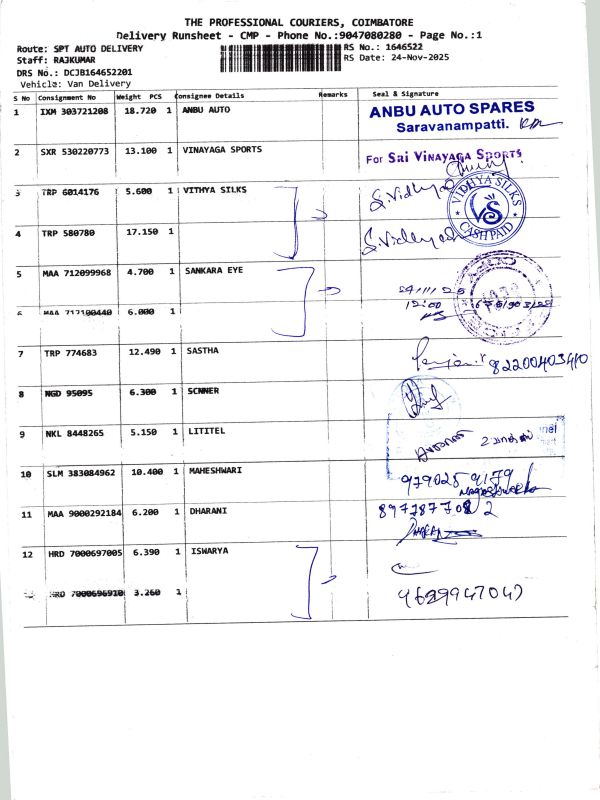 THE PROFESSIONAL COURIERS, COIMBATORE
Delivery Runsheet - CMP - Phone No.:9047080280 - Page No.:1
Route: SPT AUTO DELIVERY
RS No.: 1646522
Staff: RAJKUMAR
RS Date: 24-Nov-2025
DRS No.: DCJB164652201
Vehicle: Van Delivery
S No Consignment No Weight PCS Consignee Details Remarks Seal & Signature
1 IXM 303721208 18.720 1 ANBU AUTO
ANBU AUTO SPARES
Saravanampatti.
2 SXR 530220773 13.100 1 VINAYAGA SPORTS
For Sri Vinayaga Sports
3 TRP 6014176 5.600 1 VITHYA SILKS
S. Vidhya
VIDHYA SILKS
VS
CASH PAID
4 TRP 580780 17.150 1
S. Vidhya
5 MAA 712099968 4.700 1 SANKARA EYE
24/11/25
12:00
6 MAA 717100440 6.000 1
7 TRP 774683 12.490 1 SASTHA
82200403410
8 NGD 95095 6.300 1 SCNNER
9 NKL 8448265 5.150 1 LITITEL
10 SLM 383084962 10.400 1 MAHESHWARI
979025 9179
11 MAA 9000292184 6.200 1 DHARANI
12 HRD 7000697005 6.390 1 ISWARYA
HRD 7000696910 3.260 1
9629947047